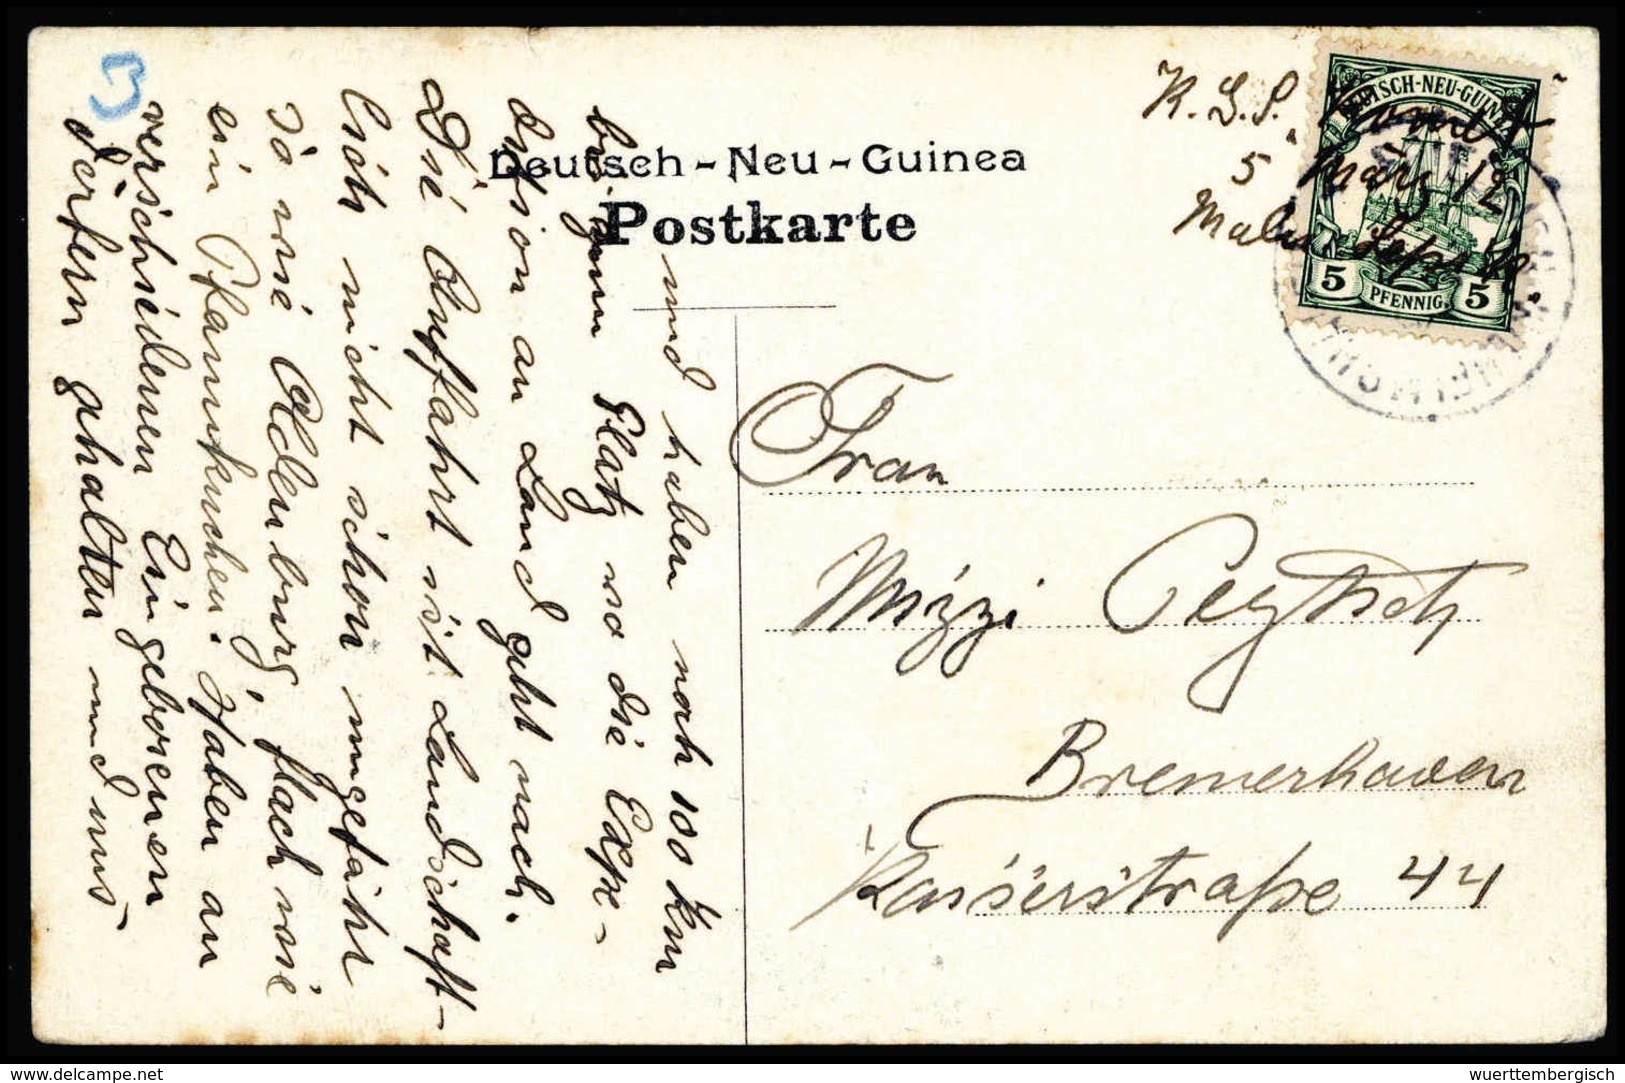 3
Deutsch-Neu-Guinea
Postkarte
K. D. S.
5 März 12
DEUTSCH-NEU-GUINEA
5 PFENNIG 5
und haben noch 100 Km
bis zum Platz wo die Expe-
dition an Land geht nach.
Die Auffahrt ist Landschaft-
lich nicht schon ungefähr
so wie Oldenburg flach wie
ein Pfannkuchen. Haben an
verschiedenen Eingeborenen
Dörfern gehalten und uns-
Frau
Mizzi
Bremerhaven
Kaiserstraße 44
delcampe.net
wuerttembergisch